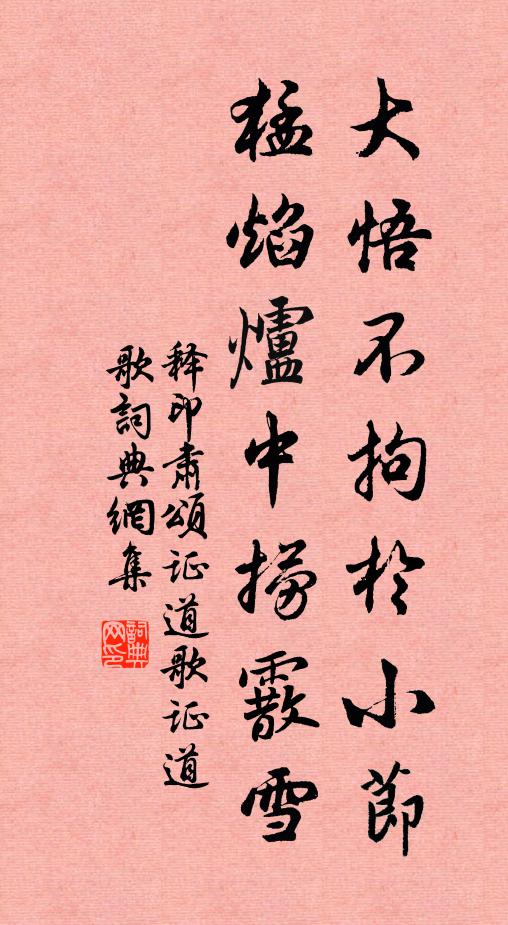 大悟不拘於小節
猛焰爐中撈霰雪
释印肃頌证道歌证道
歌詞典網集
詞典網印